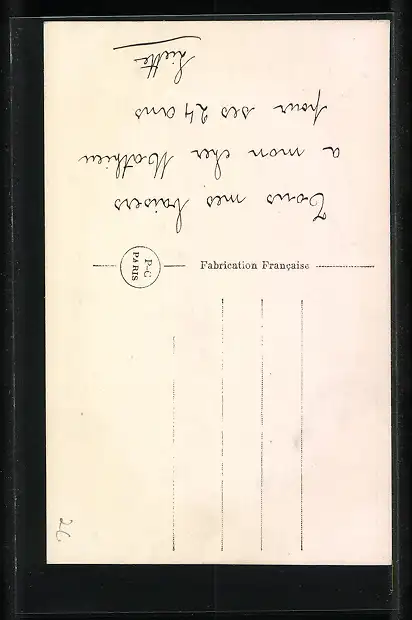 Tous mes baisers
a mon cher Mathieu
pour ses 24 ans
Liette
P-C
PARIS
Fabrication Française
26